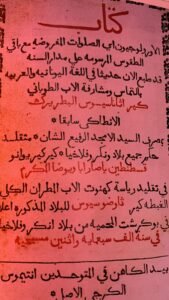 كتاب
الاورولوجيون اي الصلوات المفروضه مع باقي
الطقوس المرسومه علي مدار السنه
قد طبع الان حديثا في اللغة اليونانيه والعربيه
بالتماس ومشارفة الاب الطوباني
كير اثناسيوس البطريرك
الانطاكي سابقا
بمصرف السيد الامجد الرفيع الشان متقلد
حكم جميع بلاد ونكروفلاخيا كير كير يوانو
قسطنطين باصارابا ويوضا المكرم
في تقليد رياسة كهنوت الاب المطران الكلي
الغبطة كير ثاودوسيوس للبلاد المذكورة اعلاه
في بوكرشت المحميه من بلاد انكروفلاخيا
في سنة الف سبعمايه واثنين مسيحيه
بيد الكاهن في المتوحدين انتيموس
الكرجي الاصل